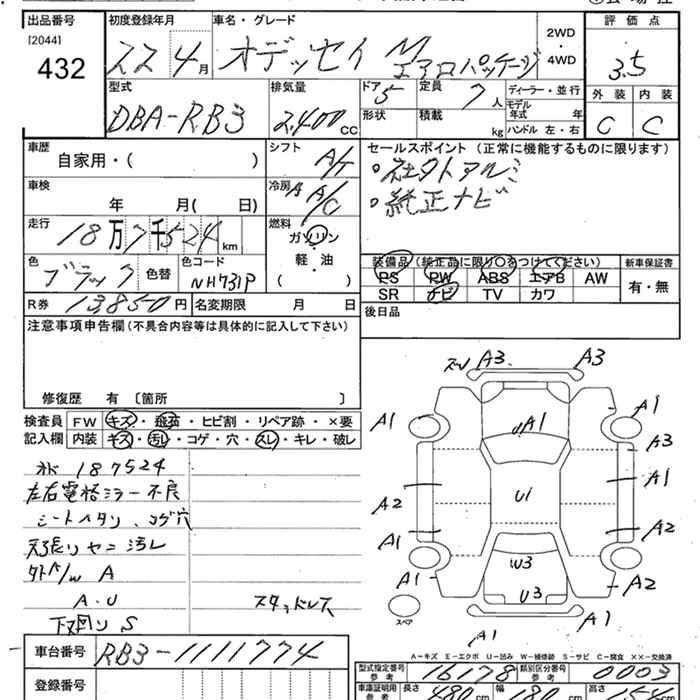 出品番号 初度登録年月 車名・グレード 2WD ・ 4WD 評価点
[2044]
432 22 4月 オデッセイ M エアロパッケージ 3.5
型式 排気量 ドア 5 定員 7人 ディーラー・並行 外装 内装
DBA-RB3 2,400CC 形状 積載 kg モデル年式 年 ハンドル 左・右 C C
車歴 シフト A/T セールスポイント (正常に機能するものに限ります)
自家用・( )
・社外アルミ
車検 冷房 A A/C ・純正ナビ
年 月( 日)
走行 燃料
18万7千524km ガソリン
軽・油
( )
色 ブラック 色替 色コード NH731P
装備品(純正品に限り○をつけてください) 新車保証書
PS PW ABS エアB AW 有・無
SR ナビ TV カワ
R券 13850円 名変期限 月 日 後日品
注意事項申告欄(不具合内容等は具体的に記入して下さい)
修復歴 有 〔箇所 〕
検査員 FW キズ・飛石・ヒビ割・リペア跡・×要
記入欄 内装 キズ・汚レ・コゲ・穴・スレ・キレ・破レ
187524
左右電格ミラー不良
シートヘタリ、コゲ穴
天張りヤニ汚レ
A
A・U スタッドレス
下回り S
A3 A3
A1 A1 A1
A3
U1 A1
A2 A2
A1
W3
A1 U3 A2
スペア A1 A1
A-キズ E-エクボ U-凹み W-補修跡 S-サビ C-腐食 ××-交換済
車台番号 RB3-1111774
型式指定番号 参考 16178 類別区分番号 参考 0003
登録番号
車庫証明用 参考 長さ 480cm 幅 180cm 高さ